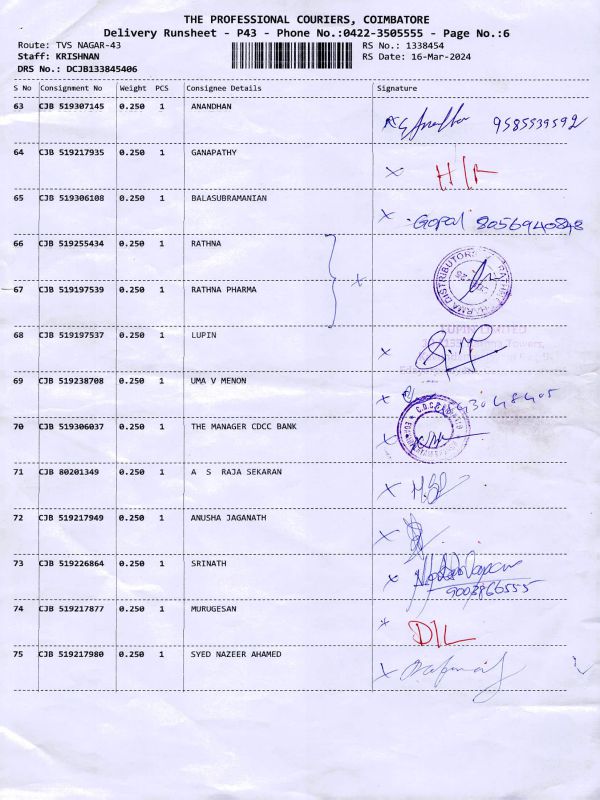 THE PROFESSIONAL COURIERS, COIMBATORE
Delivery Runsheet - P43 - Phone No.:0422-3505555 - Page No.:6
Route: TVS NAGAR-43 RS No.: 1338454
Staff: KRISHNAN RS Date: 16-Mar-2024
DRS No.: DCJB133845406
S No Consignment No Weight PCS Consignee Details Signature
63 CJB 519307145 0.250 1 ANANDHAN 9585539592
64 CJB 519217935 0.250 1 GANAPATHY
65 CJB 519306108 0.250 1 BALASUBRAMANIAN Gopal 8056940848
66 CJB 519255434 0.250 1 RATHNA
67 CJB 519197539 0.250 1 RATHNA PHARMA
68 CJB 519197537 0.250 1 LUPIN LUPIN LIMITED
69 CJB 519238708 0.250 1 UMA V MENON
70 CJB 519306037 0.250 1 THE MANAGER CDCC BANK
71 CJB 80201349 0.250 1 A S RAJA SEKARAN
72 CJB 519217949 0.250 1 ANUSHA JAGANATH
73 CJB 519226864 0.250 1 SRINATH 9003866555
74 CJB 519217877 0.250 1 MURUGESAN D/L
75 CJB 519217980 0.250 1 SYED NAZEER AHAMED